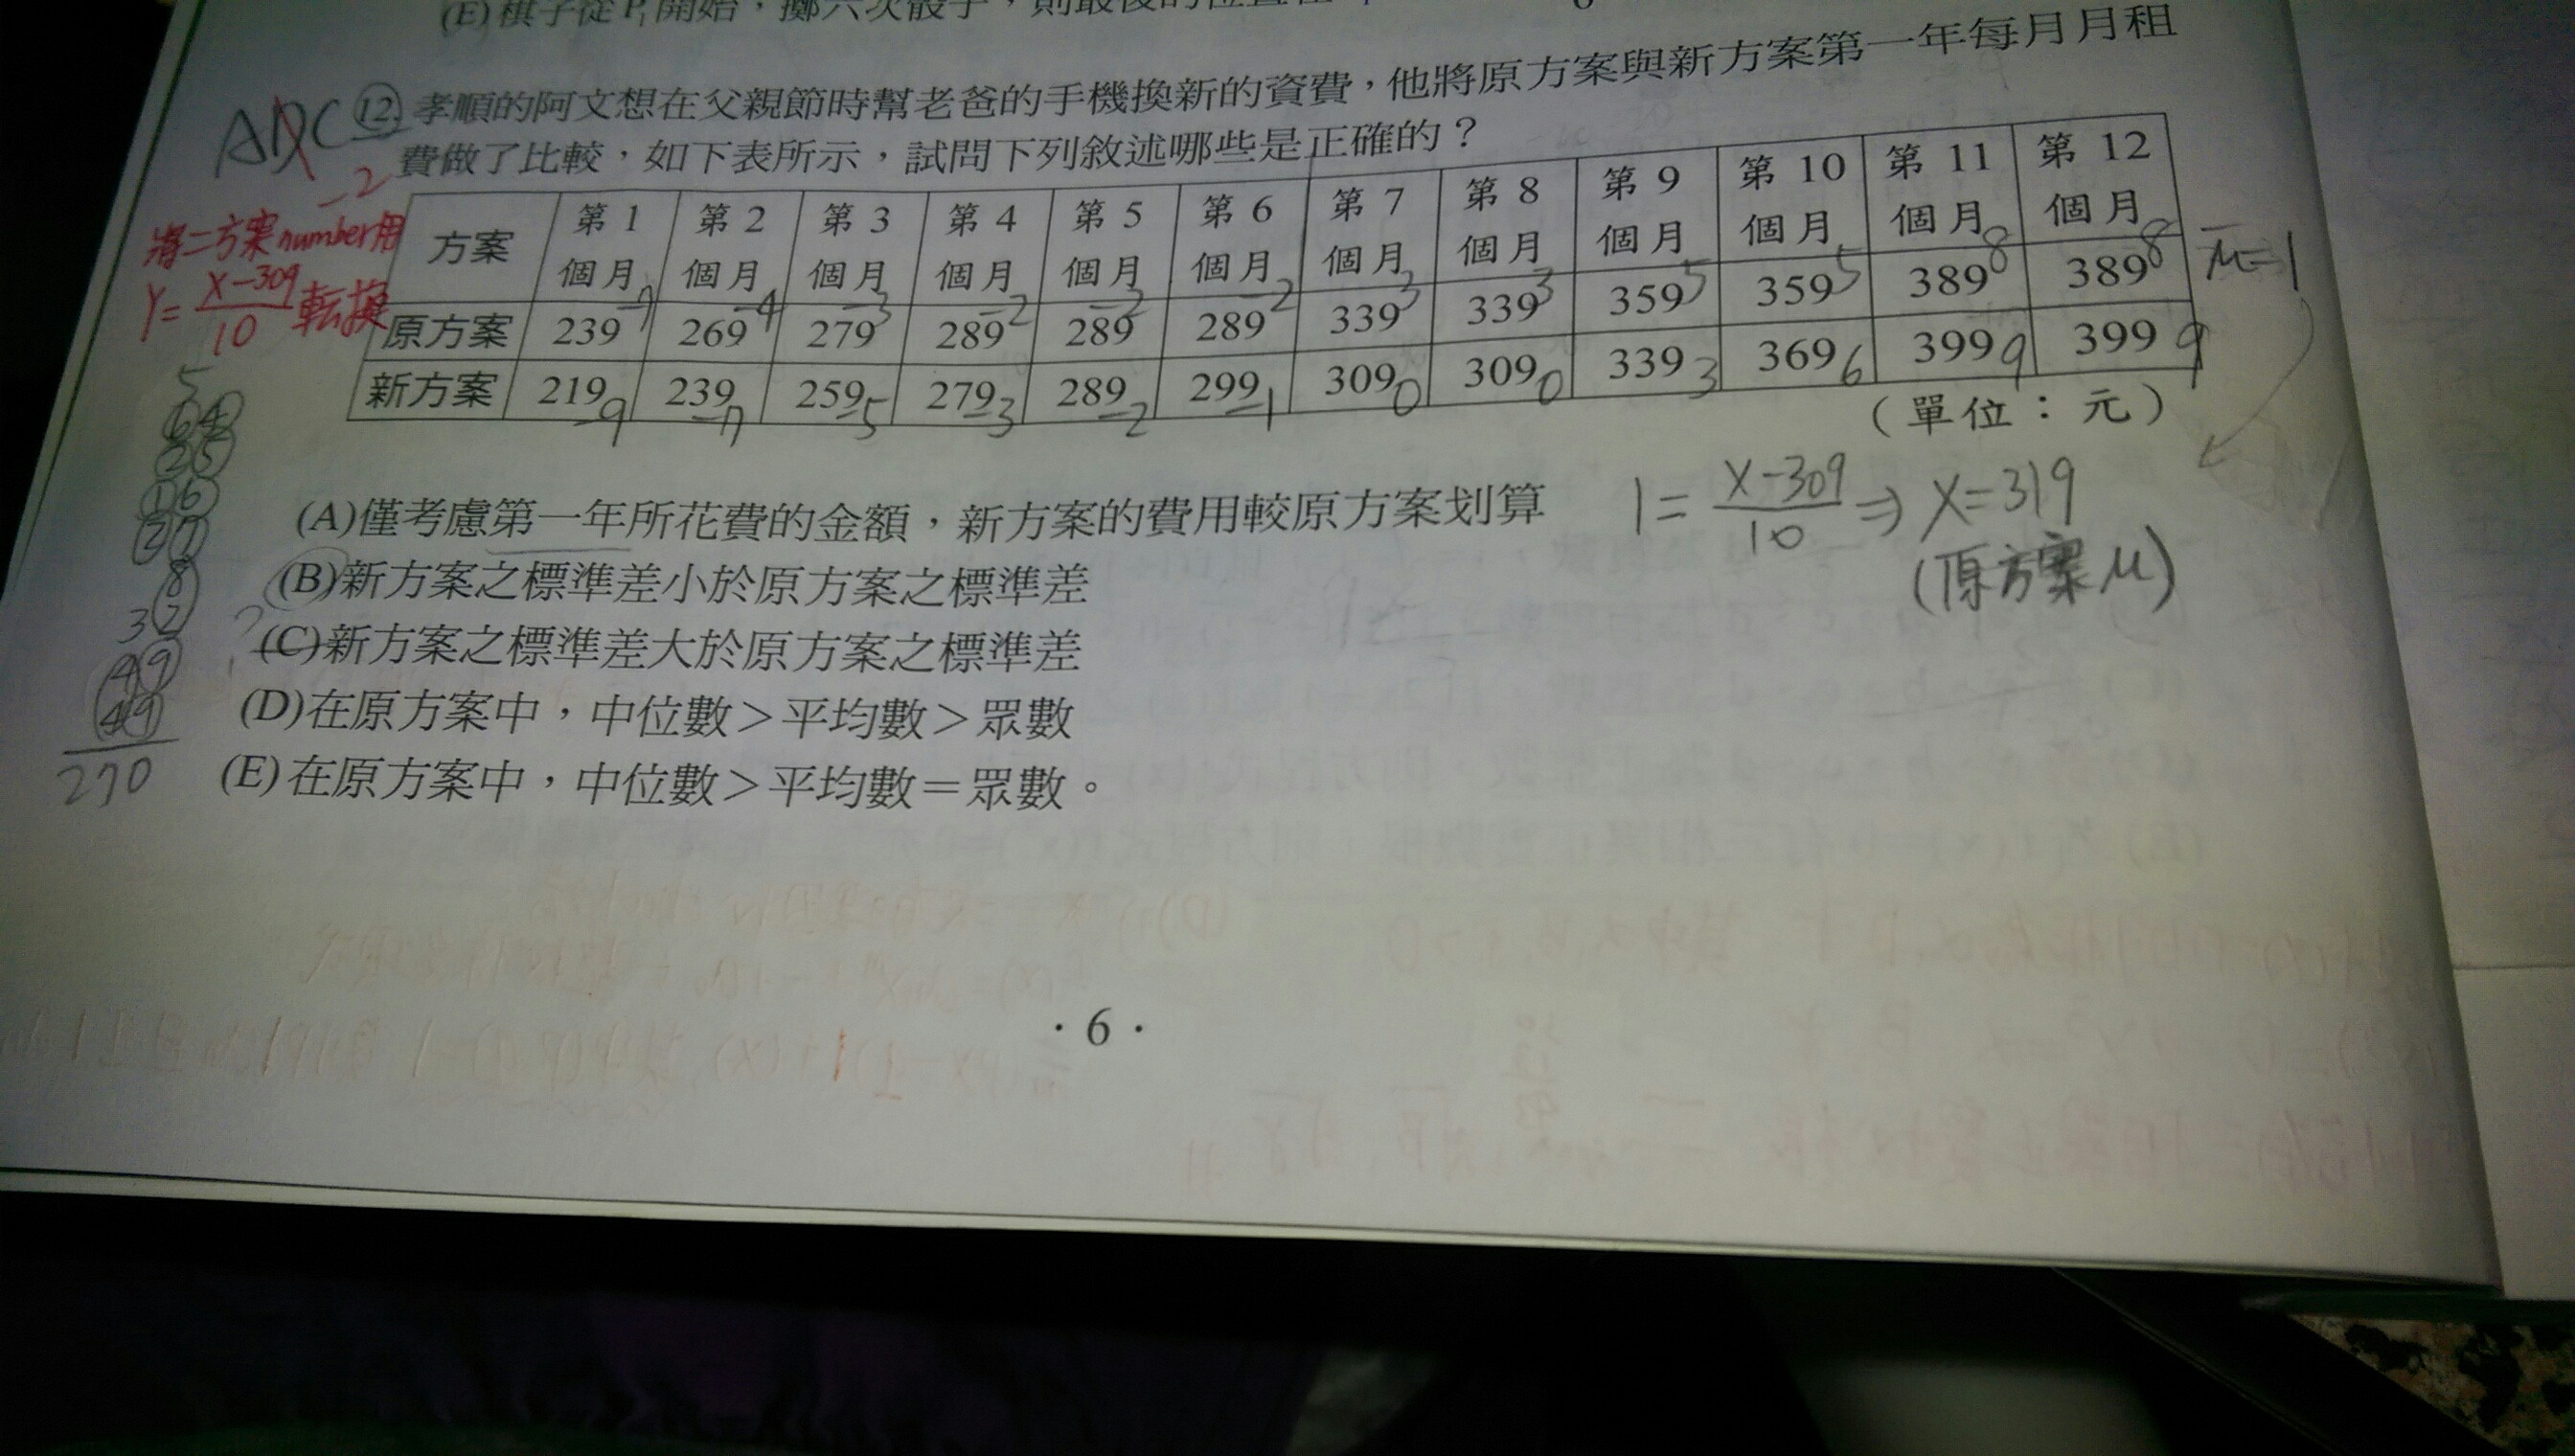 (E)棋子從P₁開始,擲六次骰子,則最後的位置在
ADC
12. 孝順的阿文想在父親節時幫老爸的手機換新的資費,他將原方案與新方案第一年每月月租
費做了比較,如下表所示,試問下列敘述哪些是正確的?
-2
將二方案number用
Y= x-309 / 10 轉換
方案 第1個月 第2個月 第3個月 第4個月 第5個月 第6個月 第7個月 第8個月 第9個月 第10個月 第11個月 第12個月
-7 -4 -3 -2 -2 -2 3 3 5 5 8 8
原方案 239 269 279 289 289 289 339 339 359 359 389 389
μ=1
新方案 219 239 259 279 289 299 309 309 339 369 399 399
-9 -7 -5 -3 -2 -1 0 0 3 6 9 9
(單位:元)
5
64
25
16
27
8
32
49
49
270
(A)僅考慮第一年所花費的金額,新方案的費用較原方案划算
1= x-309 / 10 ⇒ x=319
(原方案μ)
(B)新方案之標準差小於原方案之標準差
?
(C)新方案之標準差大於原方案之標準差
(D)在原方案中,中位數>平均數>眾數
(E)在原方案中,中位數>平均數=眾數。
·6·